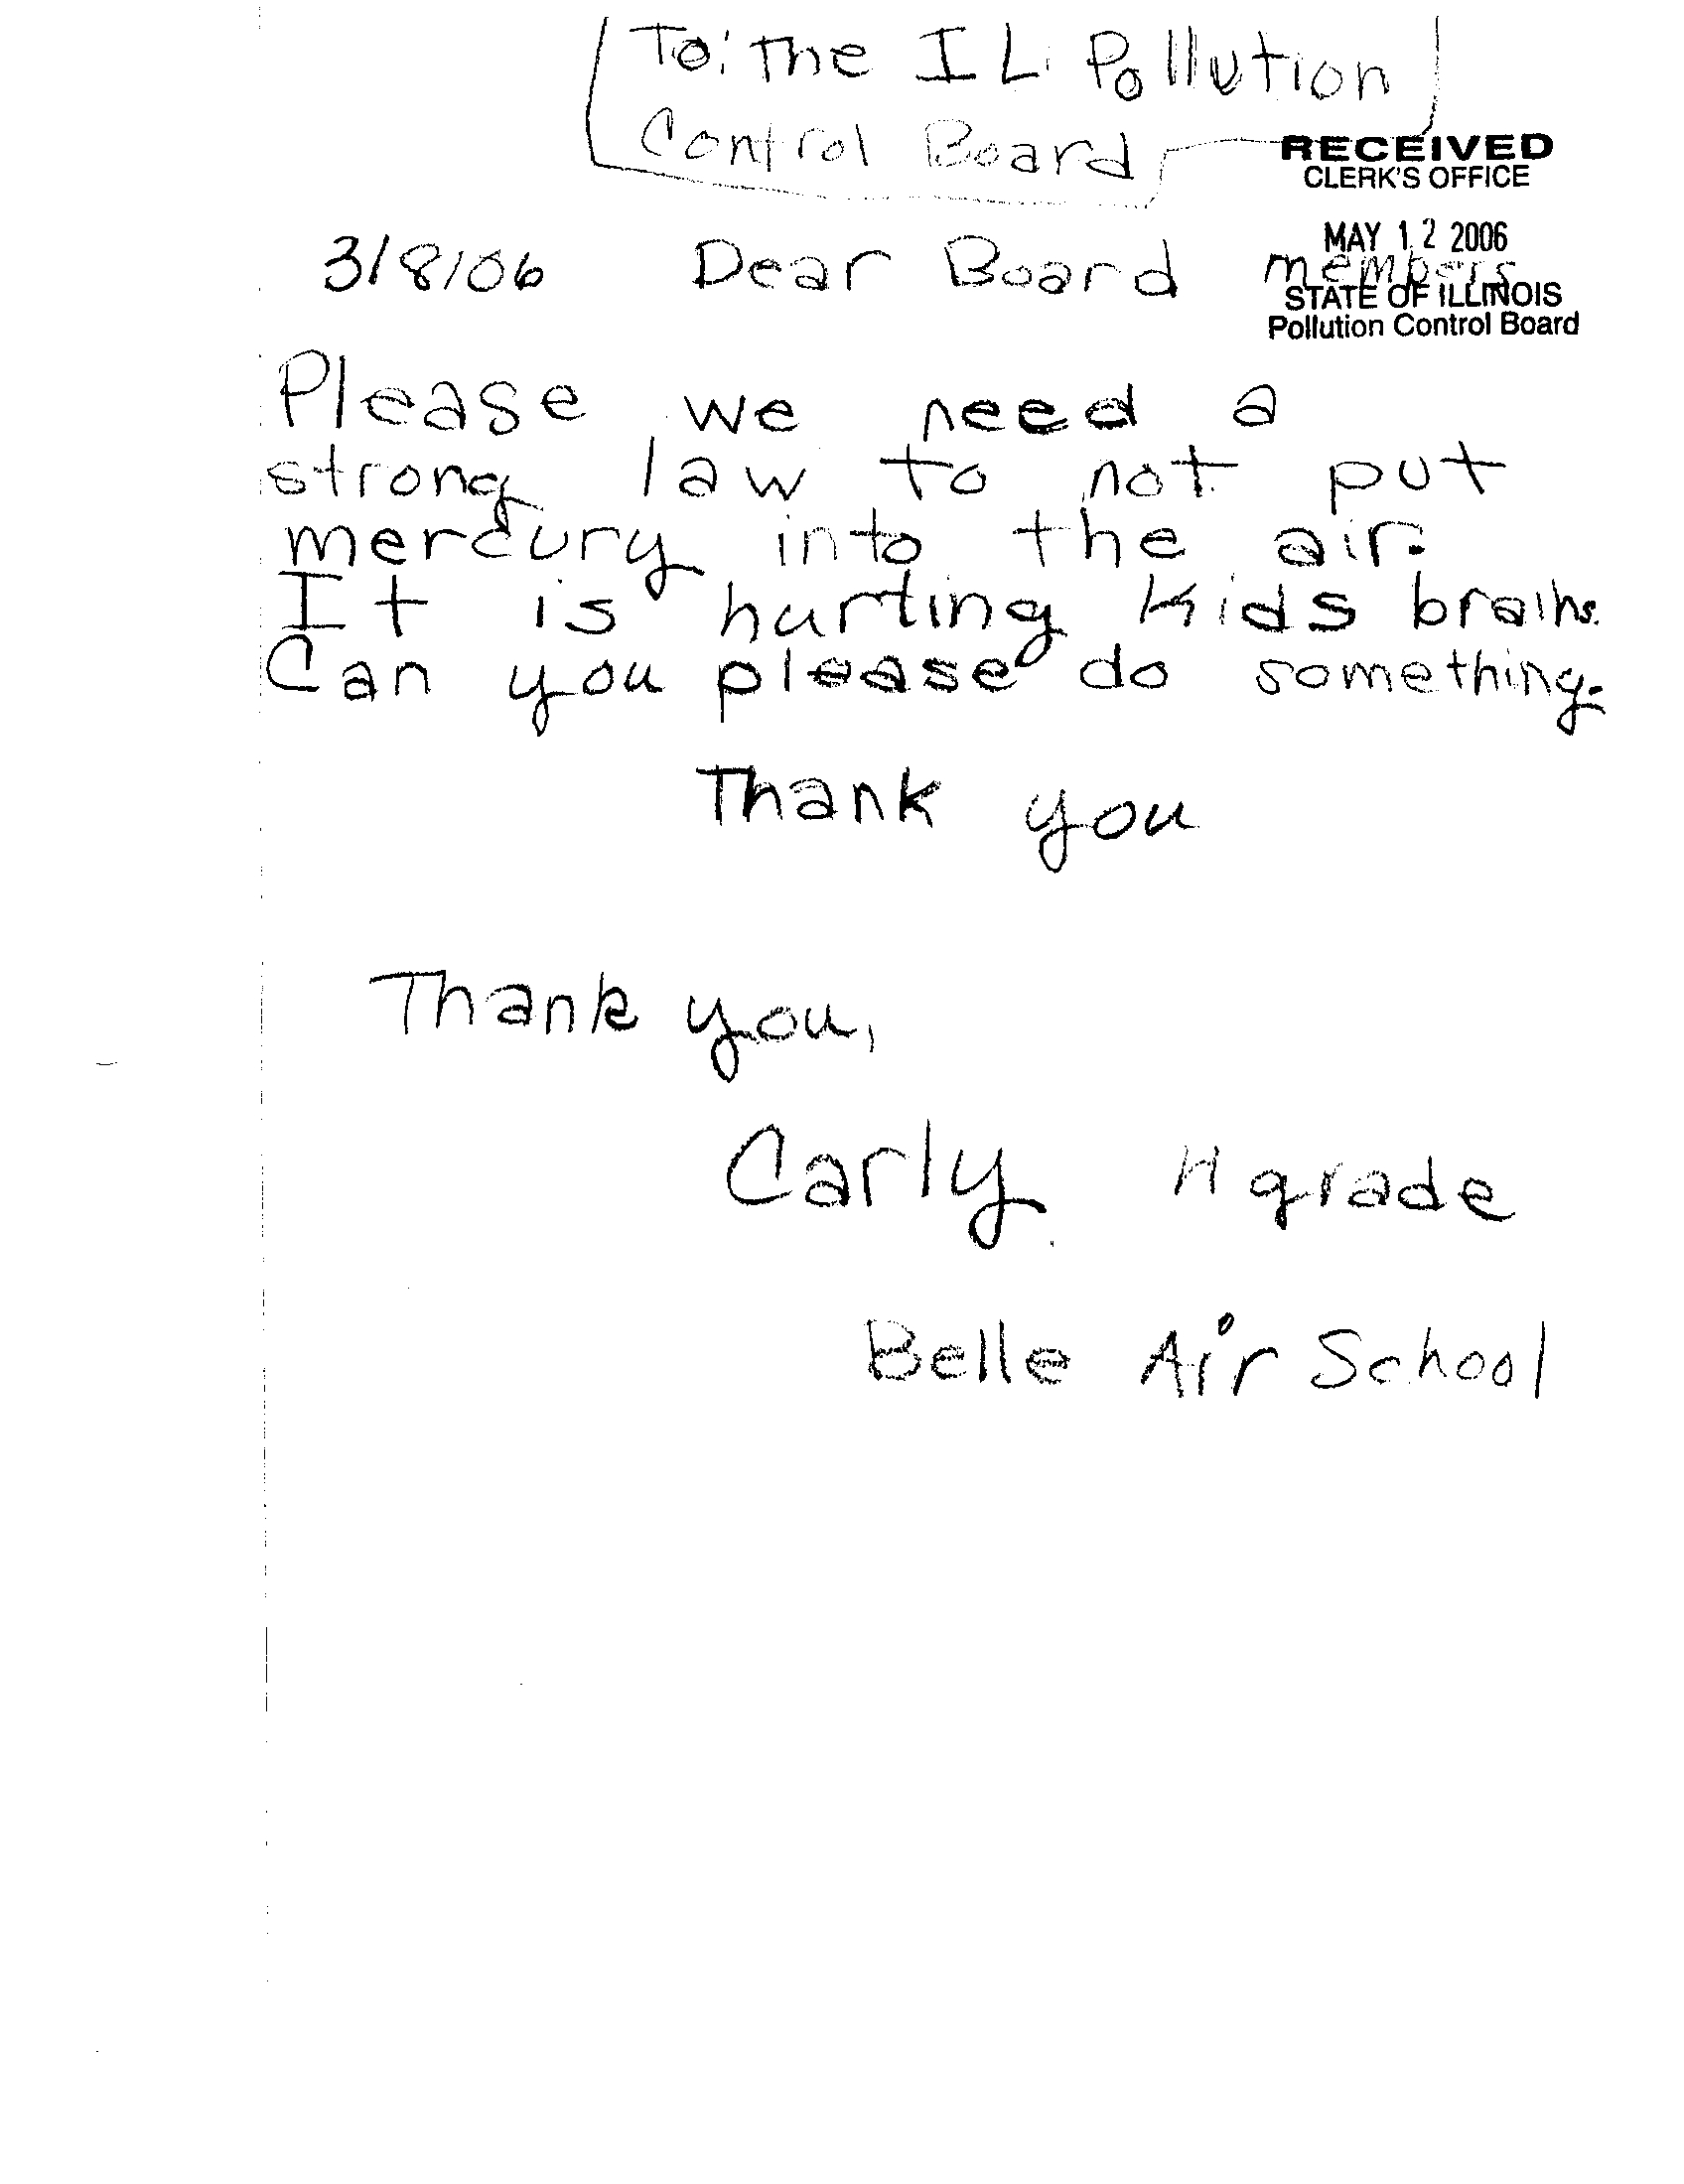 To: The IL Pollution
Control Board
RECEIVED
CLERK'S OFFICE
MAY 12 2006
STATE OF ILLINOIS
Pollution Control Board
3/8/06 Dear Board members
Please we need a
strong law to not put
mercury into the air.
It is hurting kids brains.
Can you please do something.
Thank you
Thank you,
Carly grade
Belle Air School